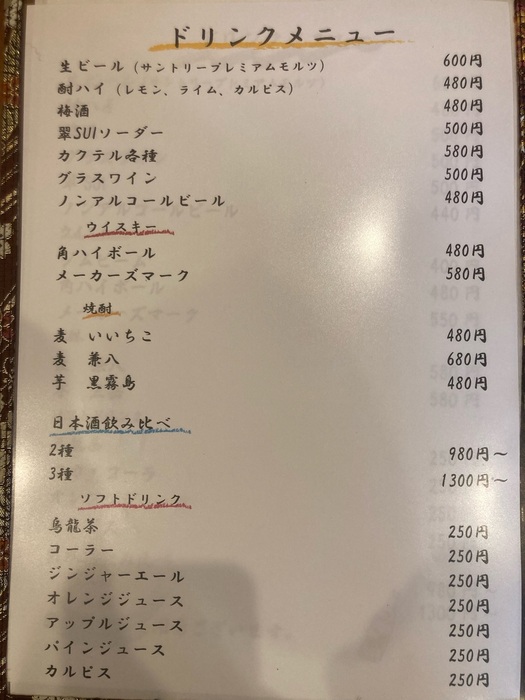 ドリンクメニュー
生ビール（サントリープレミアムモルツ） 600円
酎ハイ（レモン、ライム、カルピス） 480円
梅酒 480円
翠SUIソーダー 500円
カクテル各種 580円
グラスワイン 500円
ノンアルコールビール 480円
ウイスキー
角ハイボール 480円
メーカーズマーク 580円
焼酎
麦 いいちこ 480円
麦 兼八 680円
芋 黒霧島 480円
日本酒飲み比べ
2種 980円～
3種 1300円～
ソフトドリンク
烏龍茶 250円
コーラー 250円
ジンジャーエール 250円
オレンジジュース 250円
アップルジュース 250円
パインジュース 250円
カルピス 250円